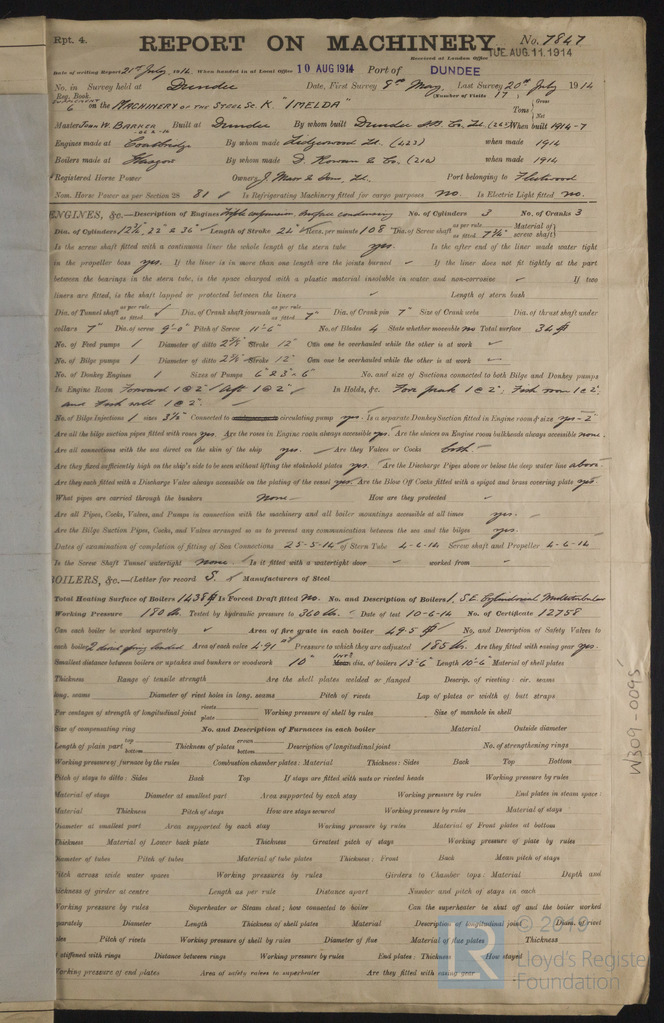 Rpt. 4.
REPORT ON MACHINERY. No. 7847
Received at London Office TUE. AUG. 11. 1914
Date of writing Report 21st July 1914. When handed in at Local Office 10 AUG 1914 Port of DUNDEE
No. in Survey held at Dundee Date, First Survey 8th May, Last Survey 20th July 1914
Reg. Book. (Number of Visits 17)
6 on the MACHINERY OF THE STEEL Sc. K. "IMELDA" Tons Gross Net
Master John W. Barker Built at Dundee By whom built Dundee S.B. Co. Ld. When built 1914-7
Engines made at Coatbridge By whom made Lidgerwood Ld. (423) when made 1914
Boilers made at Glasgow By whom made D. Rowan & Co. (210) when made 1914
Registered Horse Power Owners J. Marr & Sons, Ld. Port belonging to Fleetwood
Nom. Horse Power as per Section 28 81 Is Refrigerating Machinery fitted for cargo purposes no. Is Electric Light fitted no.
ENGINES, &c.—Description of Engines Triple expansion, Surface condensing No. of Cylinders 3 No. of Cranks 3
Dia. of Cylinders 12¾" 22" & 36" Length of Stroke 24" Revs. per minute 108 Dia. of Screw shaft as per rule as fitted 7¾" Material of screw shaft
Is the screw shaft fitted with a continuous liner the whole length of the stern tube yes. Is the after end of the liner made water tight
in the propeller boss yes. If the liner is in more than one length are the joints burned ✓ If the liner does not fit tightly at the part
between the bearings in the stern tube, is the space charged with a plastic material insoluble in water and non-corrosive ✓ If two
liners are fitted, is the shaft lapped or protected between the liners ✓ Length of stern bush
Dia. of Tunnel shaft as per rule as fitted ✓ Dia. of Crank shaft journals as per rule as fitted 7" Dia. of Crank pin 7" Size of Crank webs Dia. of thrust shaft under
collars 7" Dia. of screw 9'-0" Pitch of Screw 11'-6" No. of Blades 4 State whether moveable no Total surface 34
No. of Feed pumps 1 Diameter of ditto 2½" Stroke 12" Can one be overhauled while the other is at work ✓
No. of Bilge pumps 1 Diameter of ditto 2½" Stroke 12" Can one be overhauled while the other is at work ✓
No. of Donkey Engines 1 Sizes of Pumps No. and size of Suctions connected to both Bilge and Donkey pumps
In Engine Room Forward 1 @ 2" Aft 1 @ 2" In Holds, &c. Fore peak 1 @ 2". Fish room 1 @ 2"
and Fish well 1 @ 2".
No. of Bilge Injections 1 sizes 3½" Connected to circulating pump yes. Is a separate Donkey Suction fitted in Engine room & size yes - 2"
Are all the bilge suction pipes fitted with roses yes. Are the roses in Engine room always accessible yes. Are the sluices on Engine room bulkheads always accessible none.
Are all connections with the sea direct on the skin of the ship yes. Are they Valves or Cocks both.
Are they fixed sufficiently high on the ship's side to be seen without lifting the stokehold plates yes. Are the Discharge Pipes above or below the deep water line above.
Are they each fitted with a Discharge Valve always accessible on the plating of the vessel yes. Are the Blow Off Cocks fitted with a spigot and brass covering plate yes.
What pipes are carried through the bunkers none How are they protected ✓
Are all Pipes, Cocks, Valves, and Pumps in connection with the machinery and all boiler mountings accessible at all times yes.
Are the Bilge Suction Pipes, Cocks, and Valves arranged so as to prevent any communication between the sea and the bilges yes.
Dates of examination of completion of fitting of Sea Connections 25-5-14 of Stern Tube 4-6-14 Screw shaft and Propeller 4-6-14
Is the Screw Shaft Tunnel watertight none Is it fitted with a watertight door ✓ worked from ✓
BOILERS, &c.—(Letter for record S. ) Manufacturers of Steel
Total Heating Surface of Boilers 1438 Is Forced Draft fitted no. No. and Description of Boilers 1, S.E. Cylindrical Multitubular
Working Pressure 180 lb. Tested by hydraulic pressure to 360 lb. Date of test 10-6-14 No. of Certificate 12758
Can each boiler be worked separately ✓ Area of fire grate in each boiler 49.5 No. and Description of Safety Valves to
each boiler 2 direct spring loaded Area of each valve 4.91 Pressure to which they are adjusted 185 lb. Are they fitted with easing gear yes.
Smallest distance between boilers or uptakes and bunkers or woodwork 10" Mean dia. of boilers 13'-6" Length 10'-6 Material of shell plates
Thickness Range of tensile strength Are the shell plates welded or flanged Descrip. of riveting: cir. seams
long. seams Diameter of rivet holes in long. seams Pitch of rivets Lap of plates or width of butt straps
Per centages of strength of longitudinal joint rivets plate Working pressure of shell by rules Size of manhole in shell
Size of compensating ring No. and Description of Furnaces in each boiler Material Outside diameter
Length of plain part top bottom Thickness of plates crown bottom Description of longitudinal joint No. of strengthening rings
Working pressure of furnace by the rules Combustion chamber plates: Material Thickness: Sides Back Top Bottom
Pitch of stays to ditto: Sides Back Top If stays are fitted with nuts or riveted heads Working pressure by rules
Material of stays Diameter at smallest part Area supported by each stay Working pressure by rules End plates in steam space:
Material Thickness Pitch of stays How are stays secured Working pressure by rules Material of stays
Diameter at smallest part Area supported by each stay Working pressure by rules Material of Front plates at bottom
Thickness Material of Lower back plate Thickness Greatest pitch of stays Working pressure of plate by rules
Diameter of tubes Pitch of tubes Material of tube plates Thickness: Front Back Mean pitch of stays
Pitch across wide water spaces Working pressures by rules Girders to Chamber tops: Material Depth and
thickness of girder at centre Length as per rule Distance apart Number and pitch of stays in each
Working pressure by rules Superheater or Steam chest; how connected to boiler Can the superheater be shut off and the boiler worked
separately Diameter Length Thickness of shell plates Material Description of longitudinal joint Diam. of rivet
holes Pitch of rivets Working pressure of shell by rules Diameter of flue Material of flue plates Thickness
If stiffened with rings Distance between rings Working pressure by rules End plates: Thickness How stayed
Working pressure of end plates Area of safety valves to superheater Are they fitted with easing gear
W309-0095
LR © 2019
Lloyd's Register
Foundation